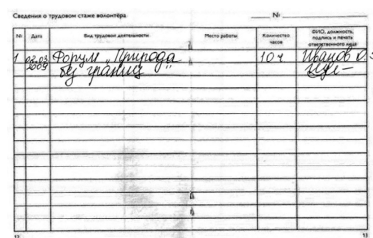 Сведения о трудовом стаже волонтёра №
№ Дата Вид трудовой деятельности Место работы Количество часов ФИО, должность, подпись и печать ответственного лица
1 Форум "Природа 10 ч Иванов О
2009 без границ"
12 13